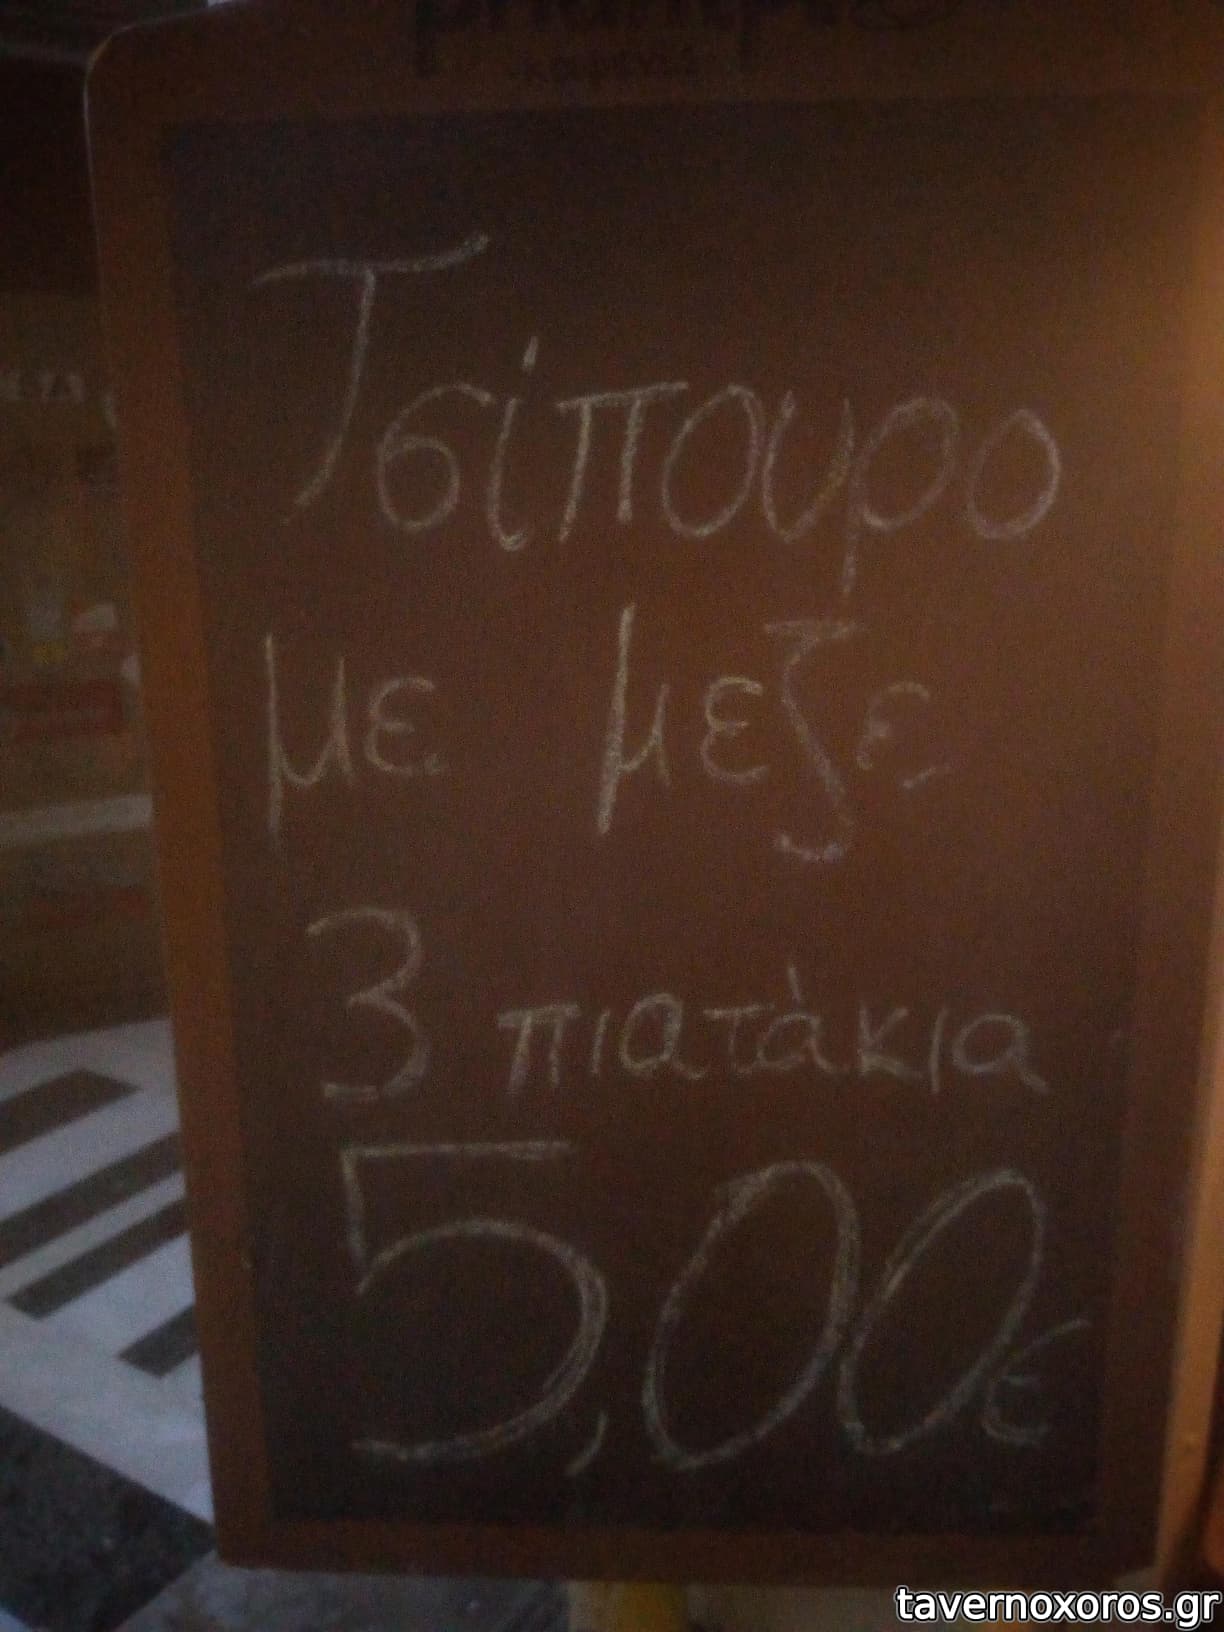 Τσίπουρο
με μεζε
3 πιατάκια
5,00€
tavernoxoros.gr